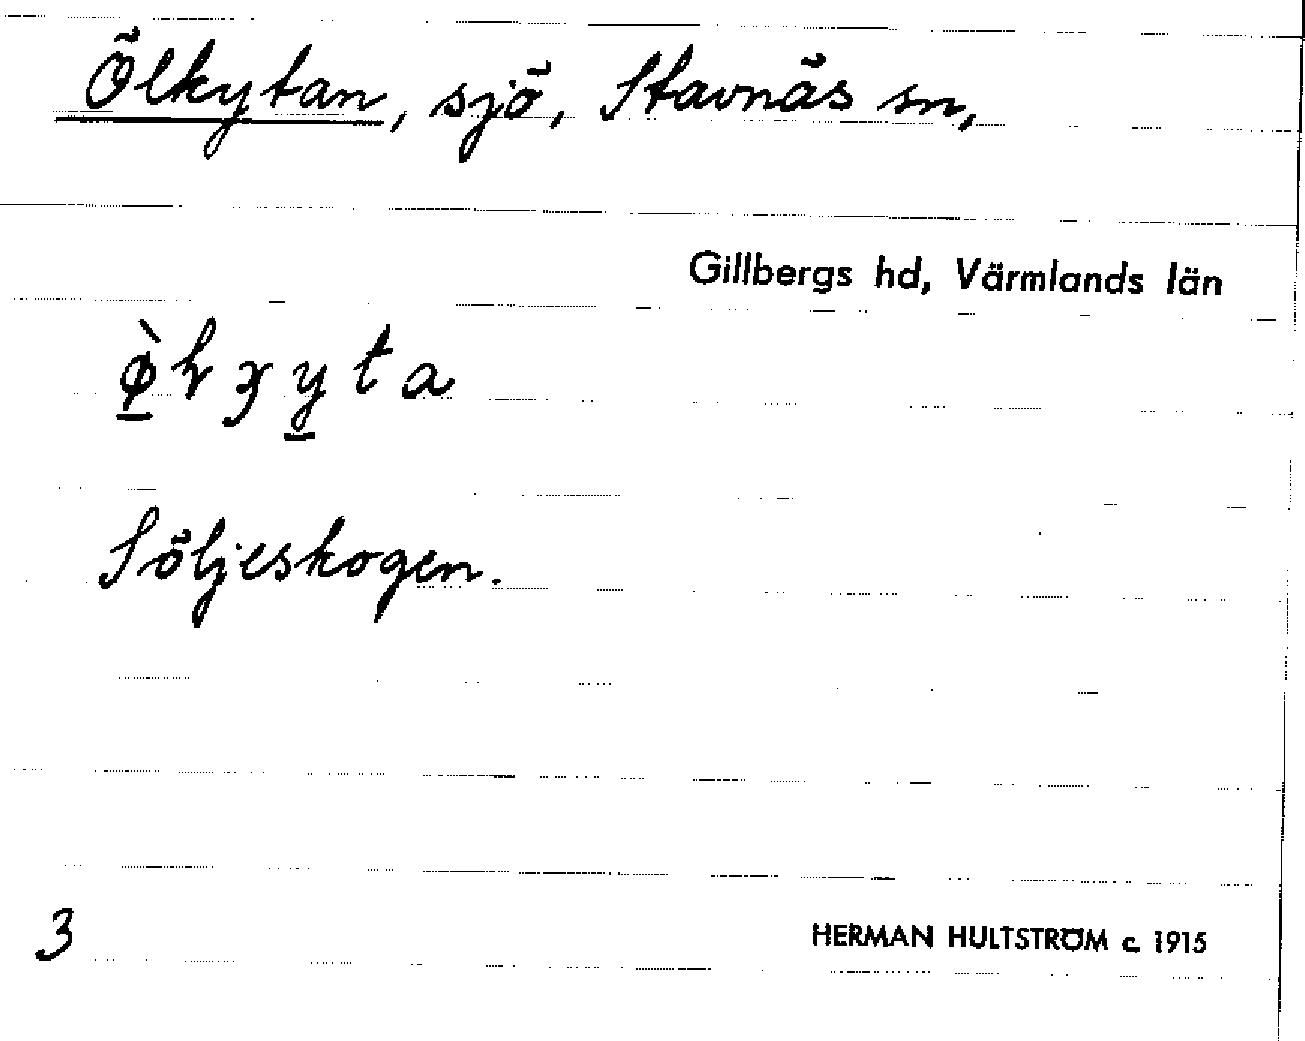 Ölkytan, sjö, Stavnäs sn,
Gillbergs hd, Värmlands län
Söljeskogen.
3
HERMAN HULTSTRÖM c. 1915